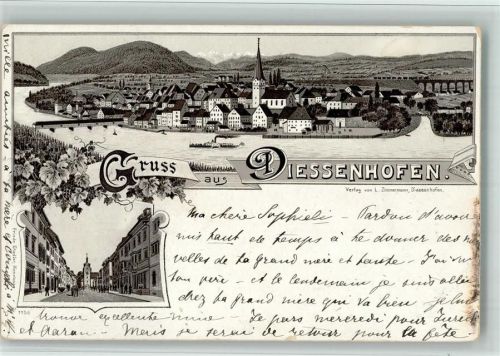 Gruss aus DIESSENHOFEN.
Verlag von L. Zimmermann, Diessenhofen.
Ma chère Sophieli - Pardon d'avoir
mis tant de temps à te donner des nou
velles de ta grand mère et tante - J'ai
ton père - et le lendemain je suis allée
chez ta grand mère qui va bien - je l'ai
trouvé excellente mine - Je pars mercredi pour Zurich
et Aarau - Mais je serai de retour pour la fête
mille amitiés à ta mère et
1150